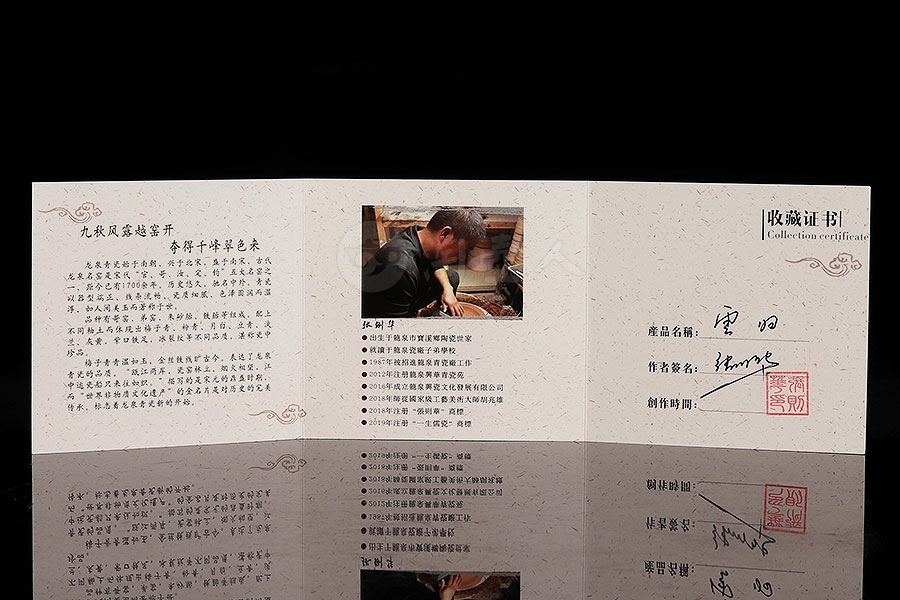 九秋风露越窑开
夺得千峰翠色来
龙泉青瓷始于南朝，兴于北宋，盛于南宋。古代
龙泉名窑是宋代“官、哥、汝、定、钧”五大名窑之
一，距今已有1700余年，历史悠久，驰名中外。青瓷
以器型端正、线条流畅、瓷质细腻、色泽圆润而温
泽，如人间美玉而著称于世。
品种有哥窑，弟窑，朱砂胎，铁胎等组成，配上
不同釉土而体现出梅子青、粉青、月白、豆青、淡
兰、灰黄，紫口铁足，冰裂纹等不同品质，谌称瓷中
珍品。
梅子青青温如玉，金丝铁线旷古今，表达了龙泉
青瓷的品质。“瓯江两岸，瓷窑林立，烟火相望，江
中运瓷船只来往如织。”描写的是宋元的鼎盛时期，
而“世界非物质文化遗产”的金名片是对历史的完美
传承，标志着龙泉青瓷新的开始。
出生于龍泉市寶溪鄉陶瓷世家
就讀于龍泉瓷廠子弟學校
1987年被招進龍泉青瓷廠工作
2012年注册龍泉興華青瓷苑
2016年成立龍泉興瓷文化發展有限公司
2018年師從國家級工藝美術大師胡兆雄
2018年注册“張則章”商標
2019年注册“一生儒瓷”商標
收藏证书
Collection certificate
產品名稱：
作者簽名：
創作時間：